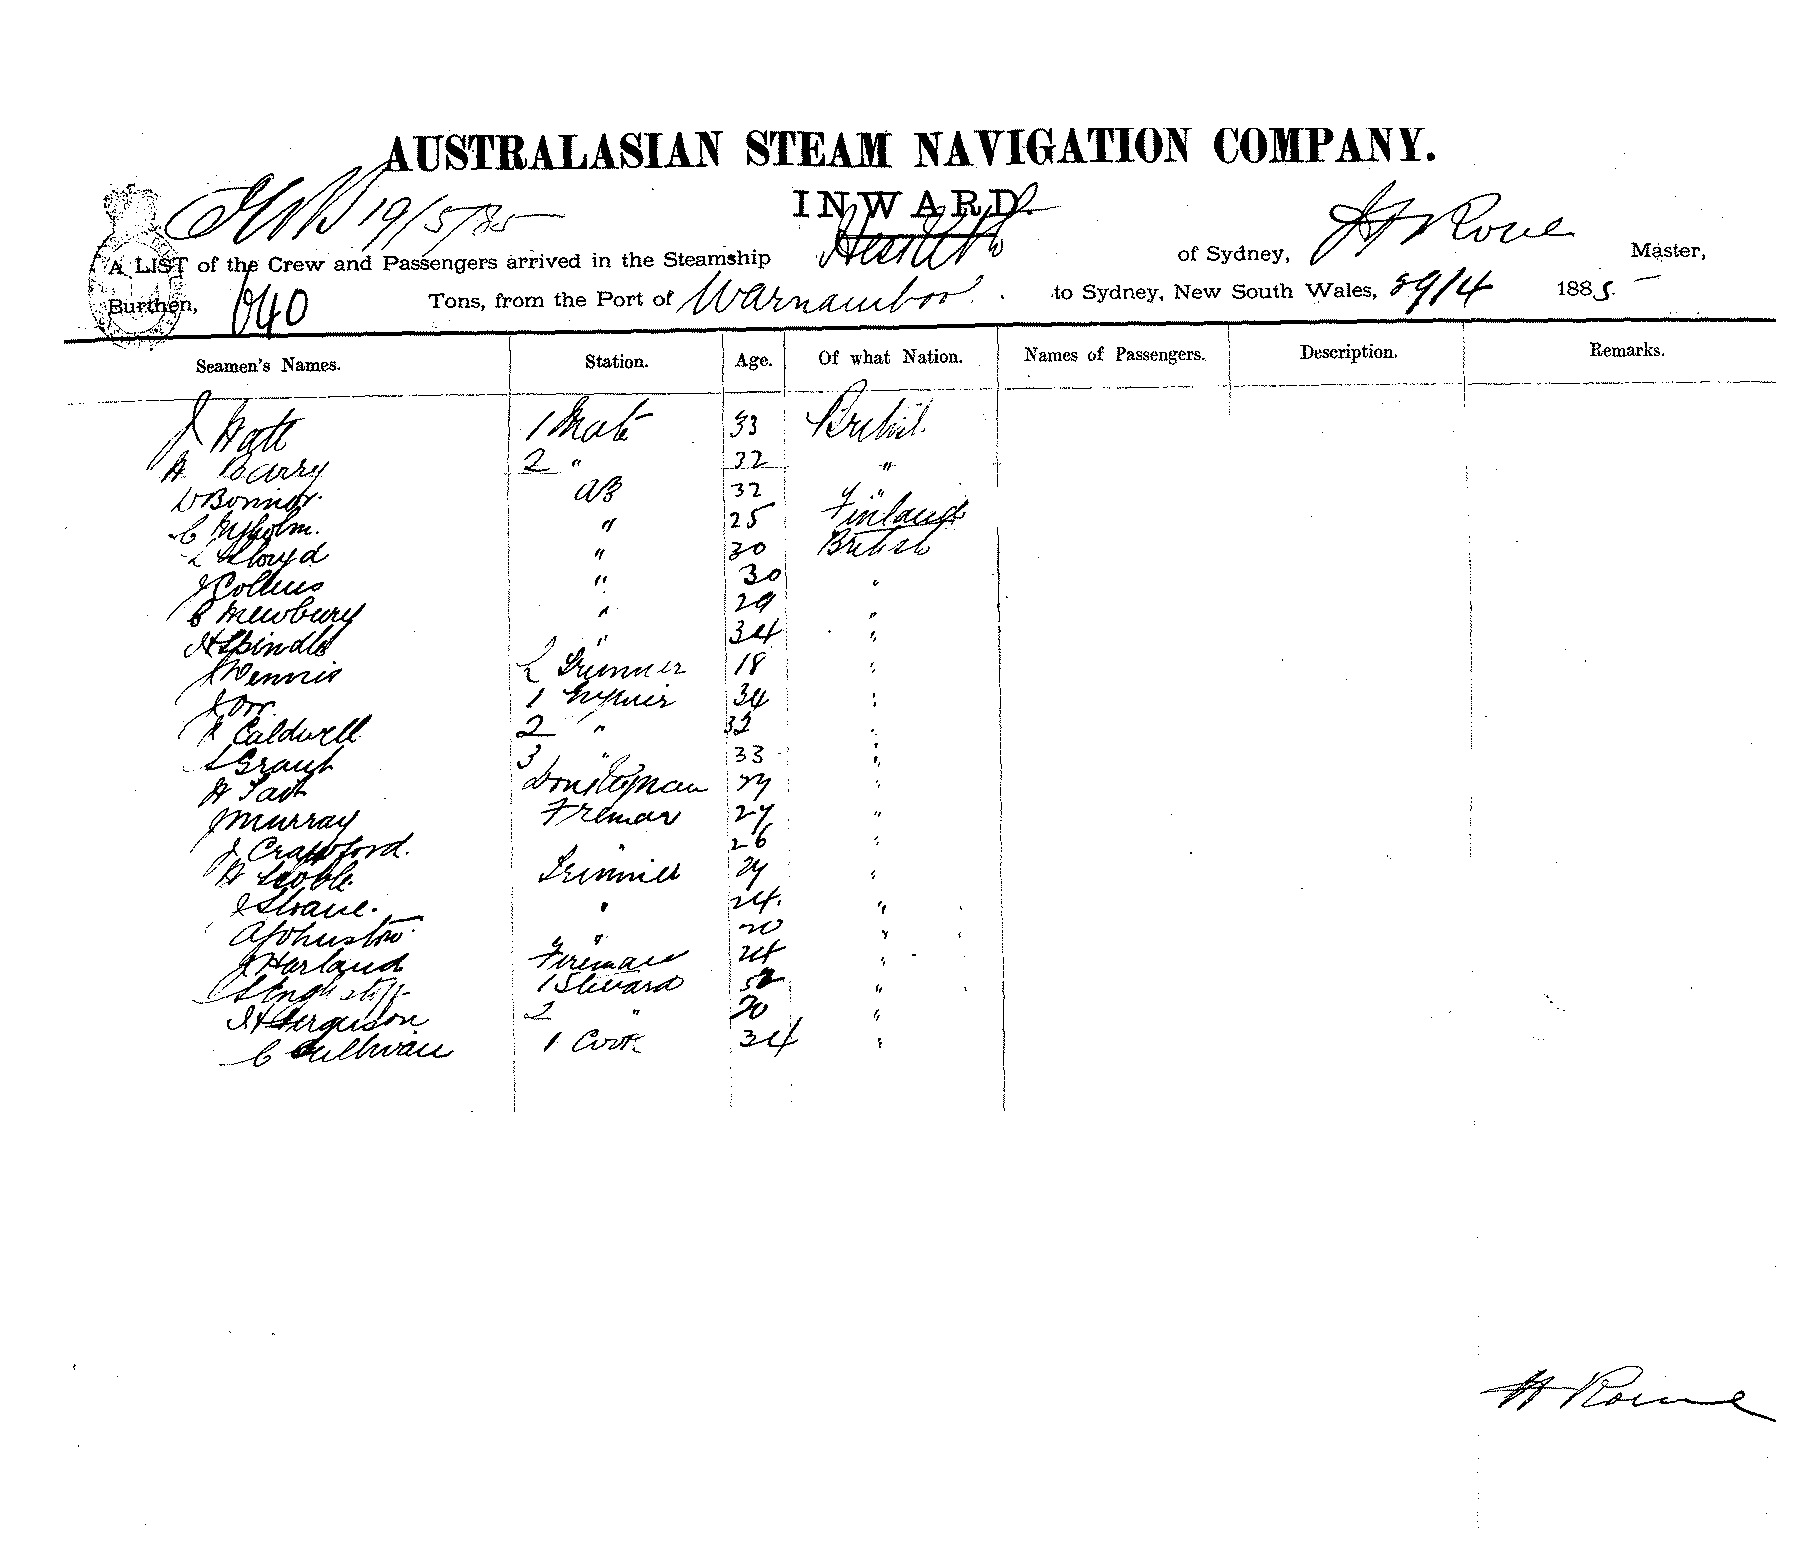 AUSTRALASIAN STEAM NAVIGATION COMPANY.
19/5/85 INWARD.
A LIST of the Crew and Passengers arrived in the Steamship Hesketh of Sydney, J H Rowe Master,
Burthen, 640 Tons, from the Port of Warnambool to Sydney, New South Wales, 29/4 1885
Seamen's Names. Station. Age. Of what Nation. Names of Passengers. Description. Remarks.
J Watt 1 Mate 33 British
H Barry 2 " 32 "
D Bonnor AB 32 "
C Nyholm. " 25 Finland
L Lloyd " 30 British
J Collins " 30 "
C Newbury " 29 "
H Spindlo " 34 "
J Dennis 2 Trimmer 18 "
J Orr 1 Engineer 34 "
R Caldwell 2 " 32 "
S Grant 3 " 33 "
H Tait Donkeyman 27 "
J Murray Fireman 27 "
J Crawford. " 26 "
H Scoble Trimmer 27 "
J Sloane. " 24 "
A Johnston " 20 "
J Harland Fireman 24 "
1 Steward "
J H Ferguson 2 " 20 "
C Sullivan 1 Cook 34 "
H Rowe